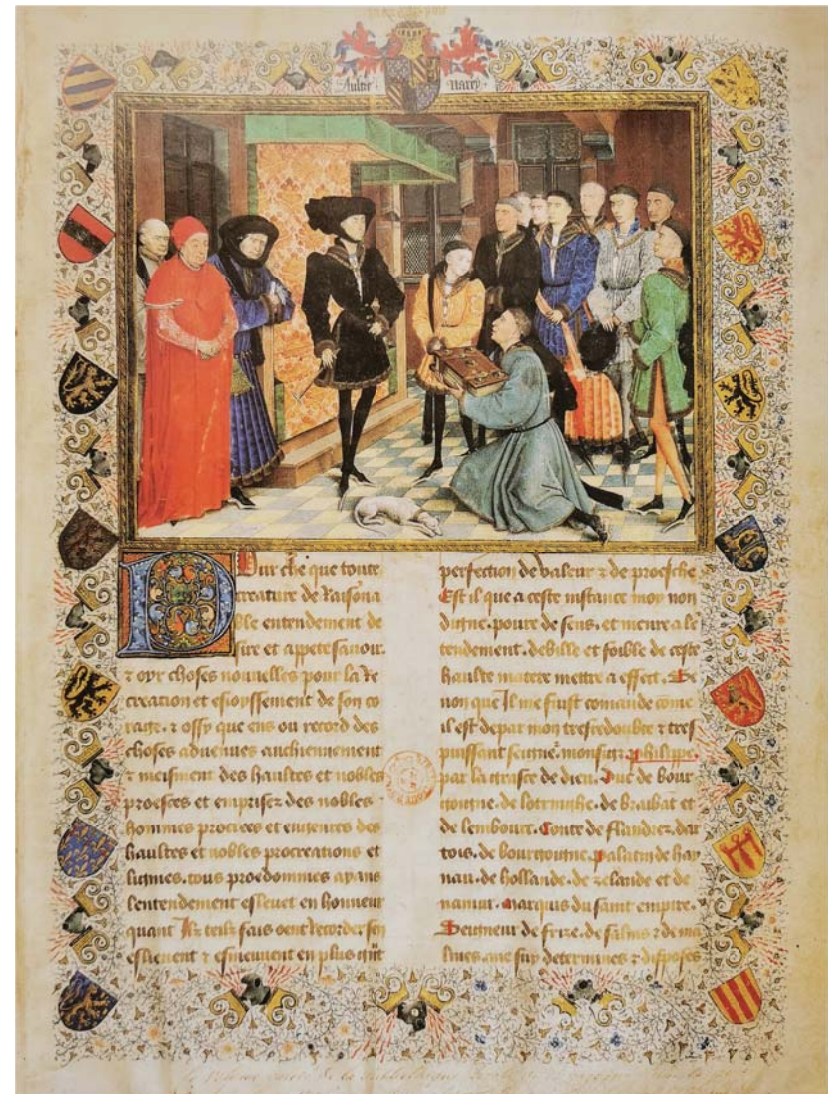 Aultre Narey
Pour che que toute
creature de Raisona
ble entendement de
sire et appete savoir
⁊ oyr choses nouvelles pour la Re
creation et esioyssement de son co
rage. ⁊ ossy que ens ou record des
choses advenues anchiennement
⁊ meisment des haultes et nobles
proesces et emprises des nobles
hommes procrees et
haultes et nobles procreations et
lignies. tous proedommes ayans
lentendement eslevet en honneur
quant Ilz telz fais oent Recorder son
eslievent ⁊ esmeuvent en plus
perfection de valeur ⁊ de proesche
Est il que a ceste instance moy non
digne. povre de sens. et menre
tendement. debille et foible de ceste
haulte matere mettre a effect. Se
non que Il me fust comande come
il est depar mon tresredoubte ⁊ tres
puissant seigne. monsigr. phelippe.
par la grasce de dieu. Duc de bour
goigne. de lotringhe. de braibat et
de lembourc. Conte de flandrez. dar
tois. de bourgoigne. palatin de hay
nau. de hollande. de zelande et de
namur. Marquis du saint empire.
Seigneur de frize. de salins ⁊ de ma
lines. me suy determines ⁊ disposes